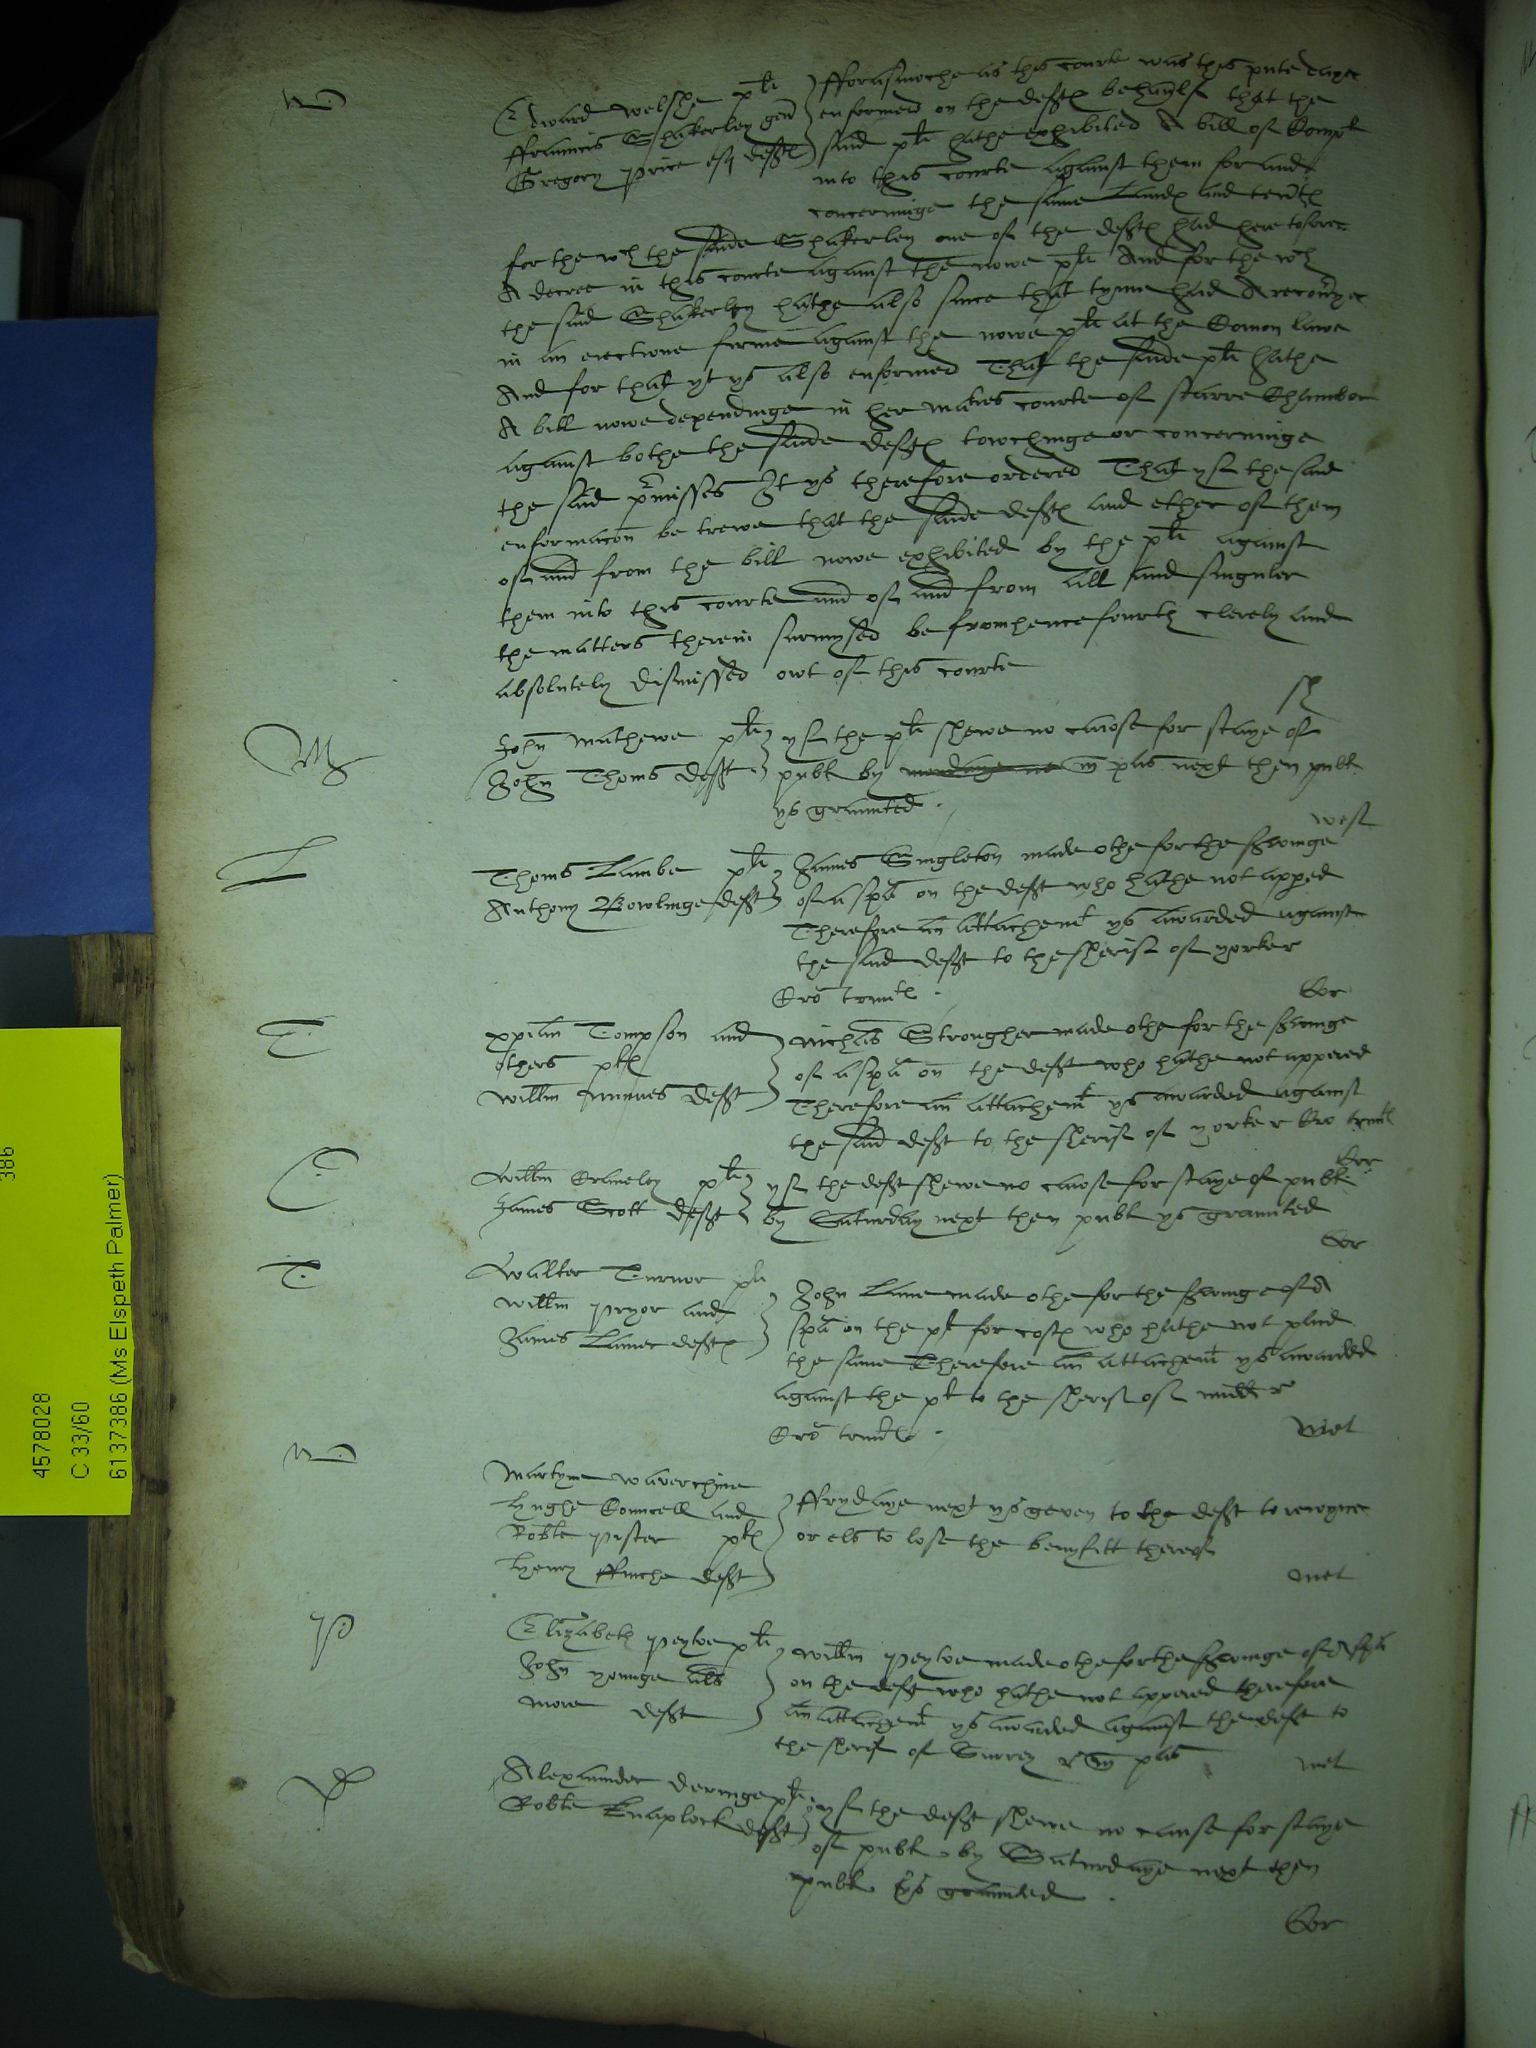 W
Edward Welshe pl
ffrauncis Shakerley gen
Gregory Price esq deftes
fforasmoche as this courte was this pnte daye
enformed on the deftes behaulf that the
said pl hathe exhibited A bill of Compl
into this courte against them for and
concerninge the same Landes and tentes
for the wch the saide Shakerley one of the deftes had heretofore
A decree in this courte against the nowe pl And for the wch
the said Shakerley hathe also since that tyme had A recoverye
in an eiectione firme against the nowe pl at the Comon lawe
And for that yt ys also enformed That the saide pl hathe
A bill nowe dependinge in her maties courte of starre Chamber
against bothe the saide deftes towchinge or concerninge
the said pmisses It ys therefore ordered That yf the said
enformacon be trewe that the saide deftes and ether of them
of and from the bill nowe exhibited by the pl against
them into this courte and of and from all and singuler
the matters therein surmysed be fromhencefourth clerely and
absolutely dismissed owt of this courte
M
John Mathewe pl
John Thoms deft
yf the pl shewe no cause for staye of
publ by m pas next then publ
ys graunted
L
Thoms Lambe pl
Anthony Bowlinge deft
West
James Singleton made othe for the servinge
of a spa on the deft who hathe not apped
Therefore an attachemt ys awarded against
the said deft to the sherif of yorke r
Cro trinit
Cor
T
xpian Tompson and
others ples
Willm deft
nichas Strougher made othe for the servinge
of a spa on the deft who hathe not appered
Therefore an attachemt ys awarded against
the said deft to the sherif of yorke r Cro trinit
Cor
C
Willm Crameley pl
James Scott deft
yf the deft shewe no cause for staye of publ
by Saturday next then publ ys graunted
Cor
T
Walter Turnor pl
Willm Pryor and
James Lane deftes
John Lane made othe for the servinge of A
spa on the pl for costes who hathe not paid
the same Therefore an attachemt ys awarded
against the pl to the sherif of midd r
Cro trinit
Wel
W
Martyne Waverchine
Hughe Councell and
Robte Pister ples
Henry ffinche deft
ffrydaye next ys geven to the deft to reioyne
or els to lose the benyfitt thereof
Wel
P
Elizabeth Peyto pl
John Yonge als
More deft
Willm Peyto made othe for the servinge of A spa
on the deft who hathe not appered therefore
an attachemt ys awarded against the deft to
the sherif of Surrey r m pas
Wel
D
Alexaunder Deringe pl
Robte Knaplock deft
yf the deft shewe no cause for staye
of publ by Saturdaye next then
publ ys graunted
Cor
386
4578028
C 33/60
6137386 (Ms Elspeth Palmer)